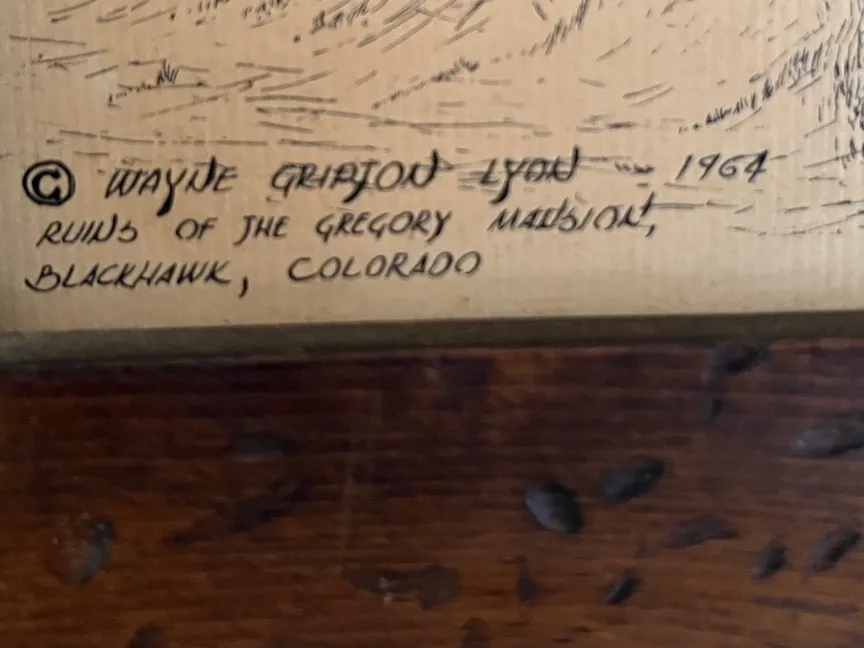 © WAYNE GRIPTON LYON - 1964
RUINS OF THE GREGORY MANSION,
BLACKHAWK, COLORADO